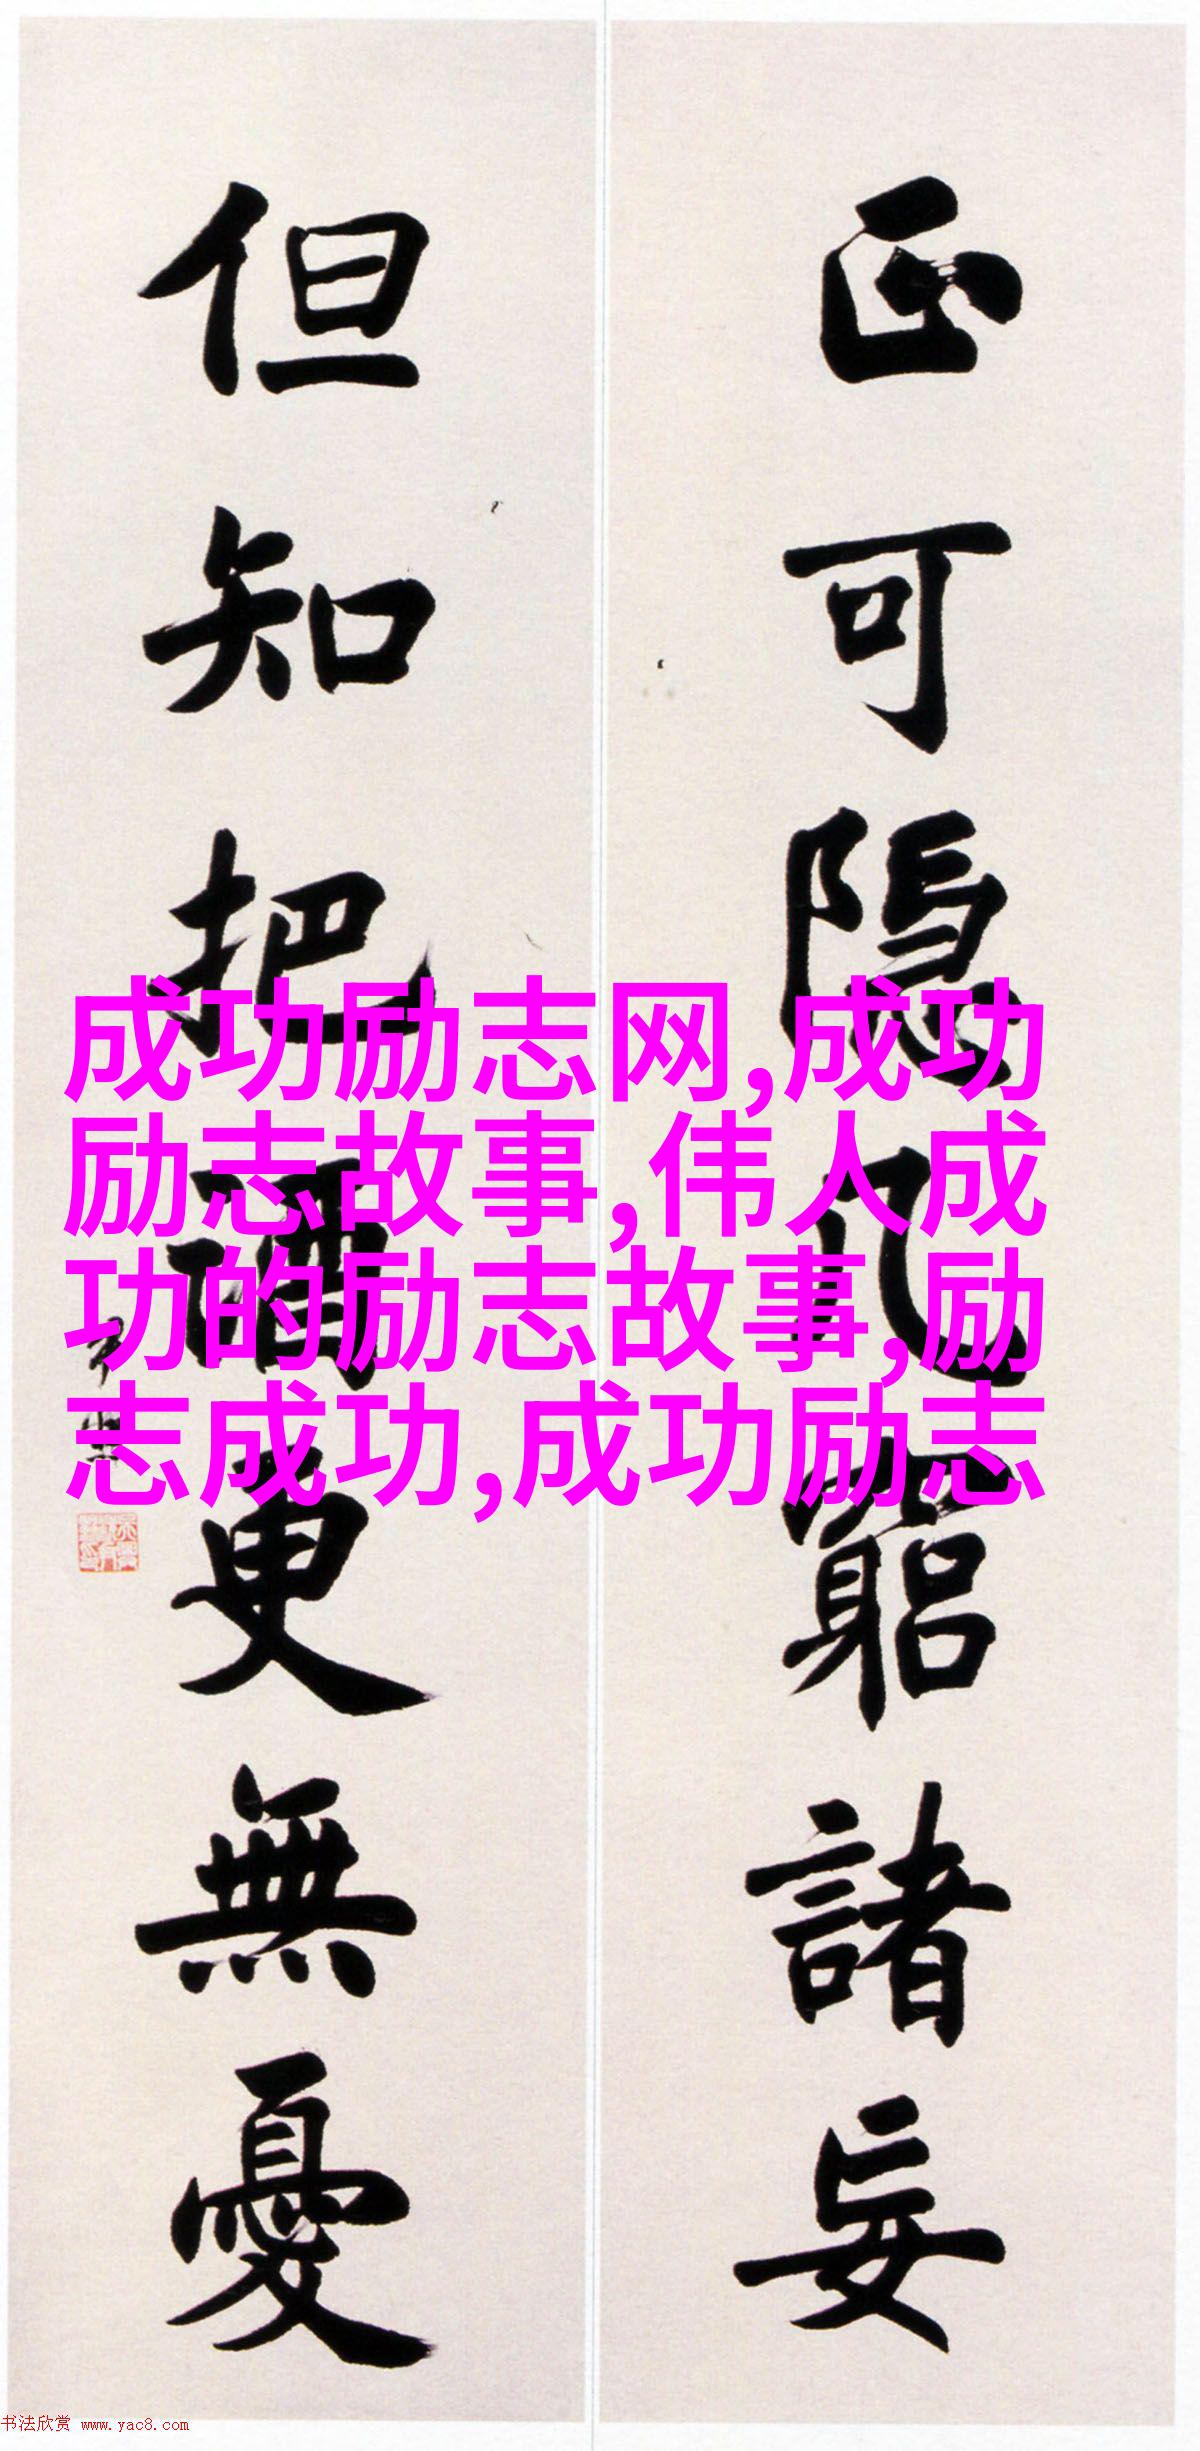 正可隱几窮諸妄
但知把酒更無憂
成功励志网,成功
励志故事,伟人成
功的励志故事,励
志成功,成功励志
书法欣赏 www.yac8.com